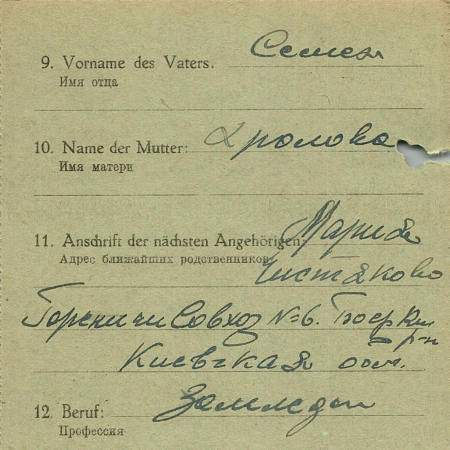 9. Vorname des Vaters: Семен
Имя отца
10. Name der Mutter: Хролова
Имя матери
11. Anschrift der nächsten Angehörigen: Мария
Адрес ближайших родственников: Чистяково
Гореничи Совхоз №6. р-н
Киевская обл.
12. Beruf: Земледел
Профессия